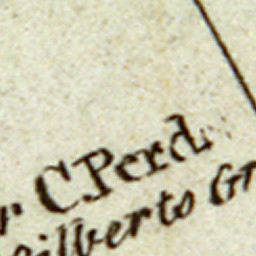 C Perd.
Gilberto Gr